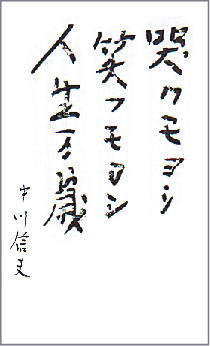 哭クモヨシ
笑フモヨシ
人生万歳
中川信夫